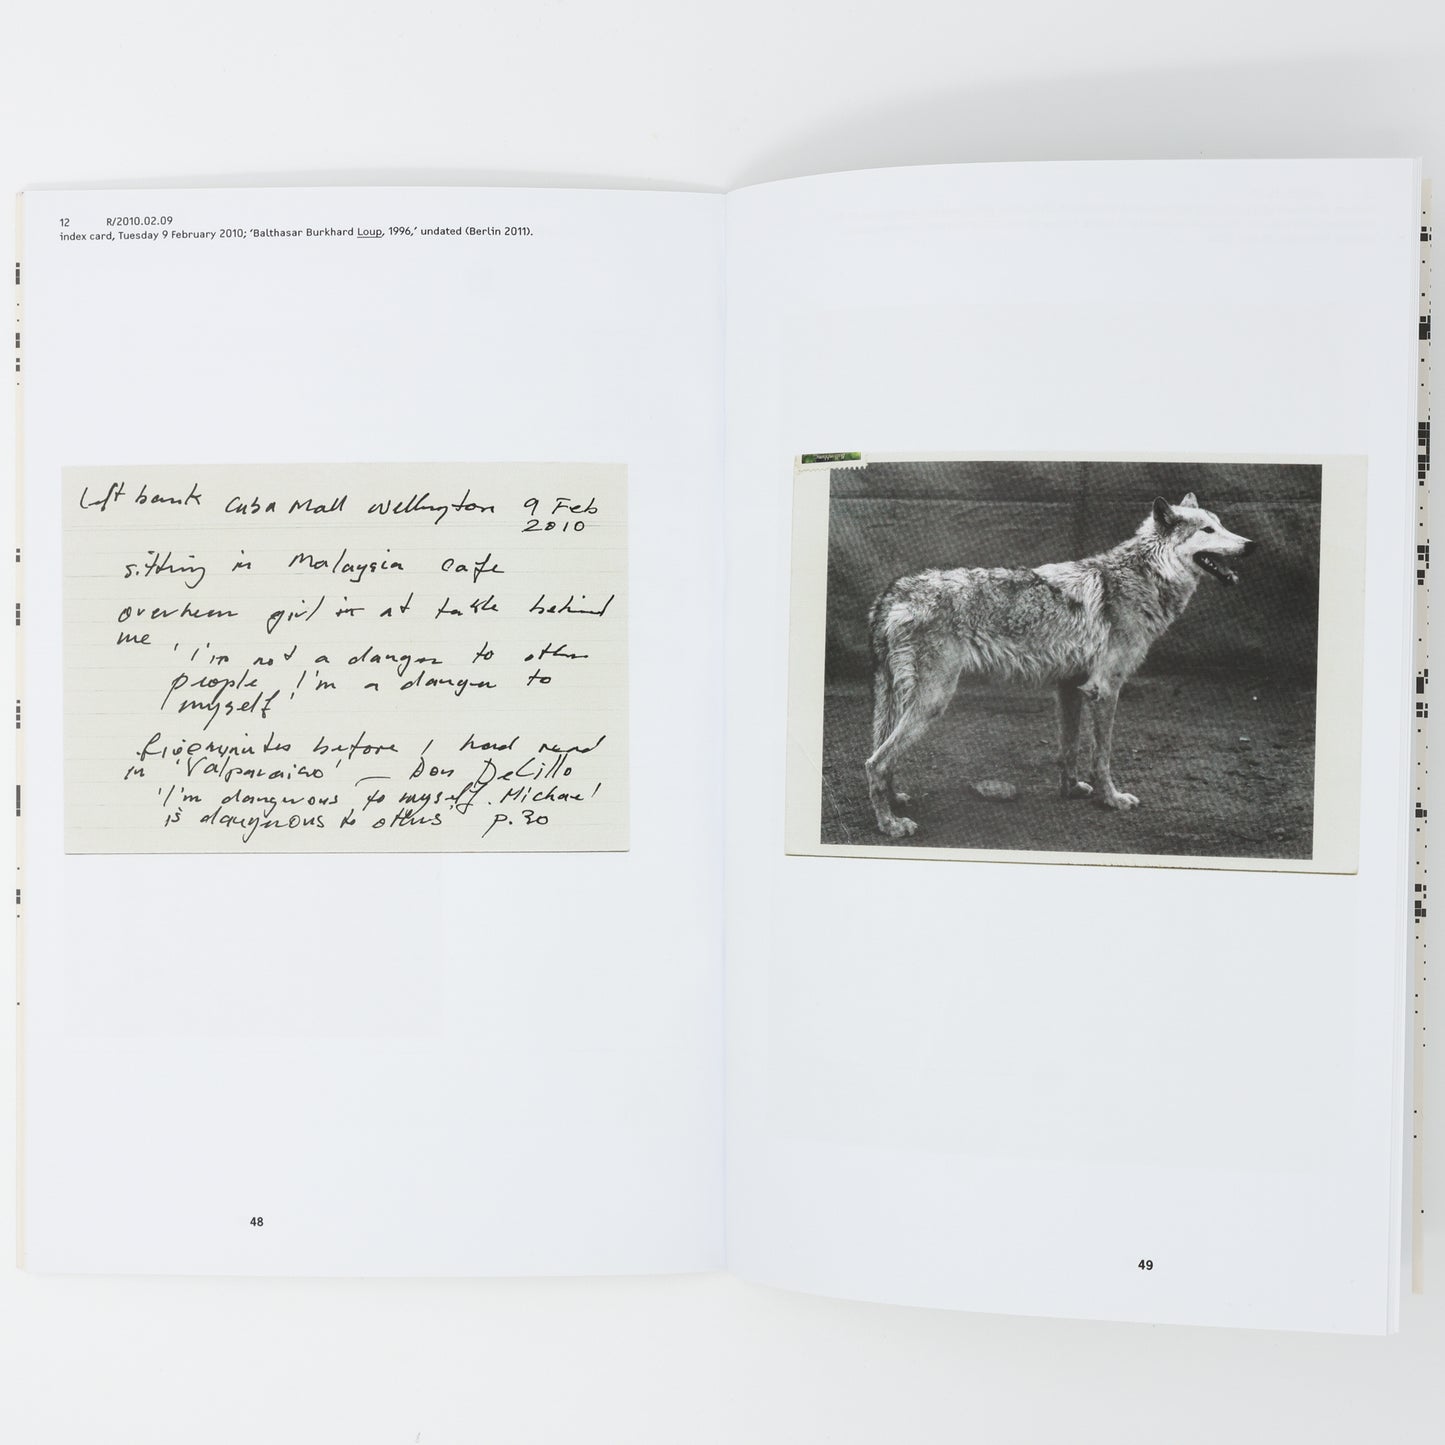 12 R/2010.02.09
index card, Tuesday 9 February 2010; ‘Balthasar Burkhard Loup, 1996,’ undated (Berlin 2011).
Left bank Cuba Mall Wellington 9 Feb
2010
sitting in Malaysia cafe
overhear girl at table behind
me
'I'm not a danger to other
people, I'm a danger to
myself'
five minutes before I had read
in 'Valparaiso' — Don DeLillo
'I'm dangerous to myself. Michael
is dangerous to others' p. 30
48
49